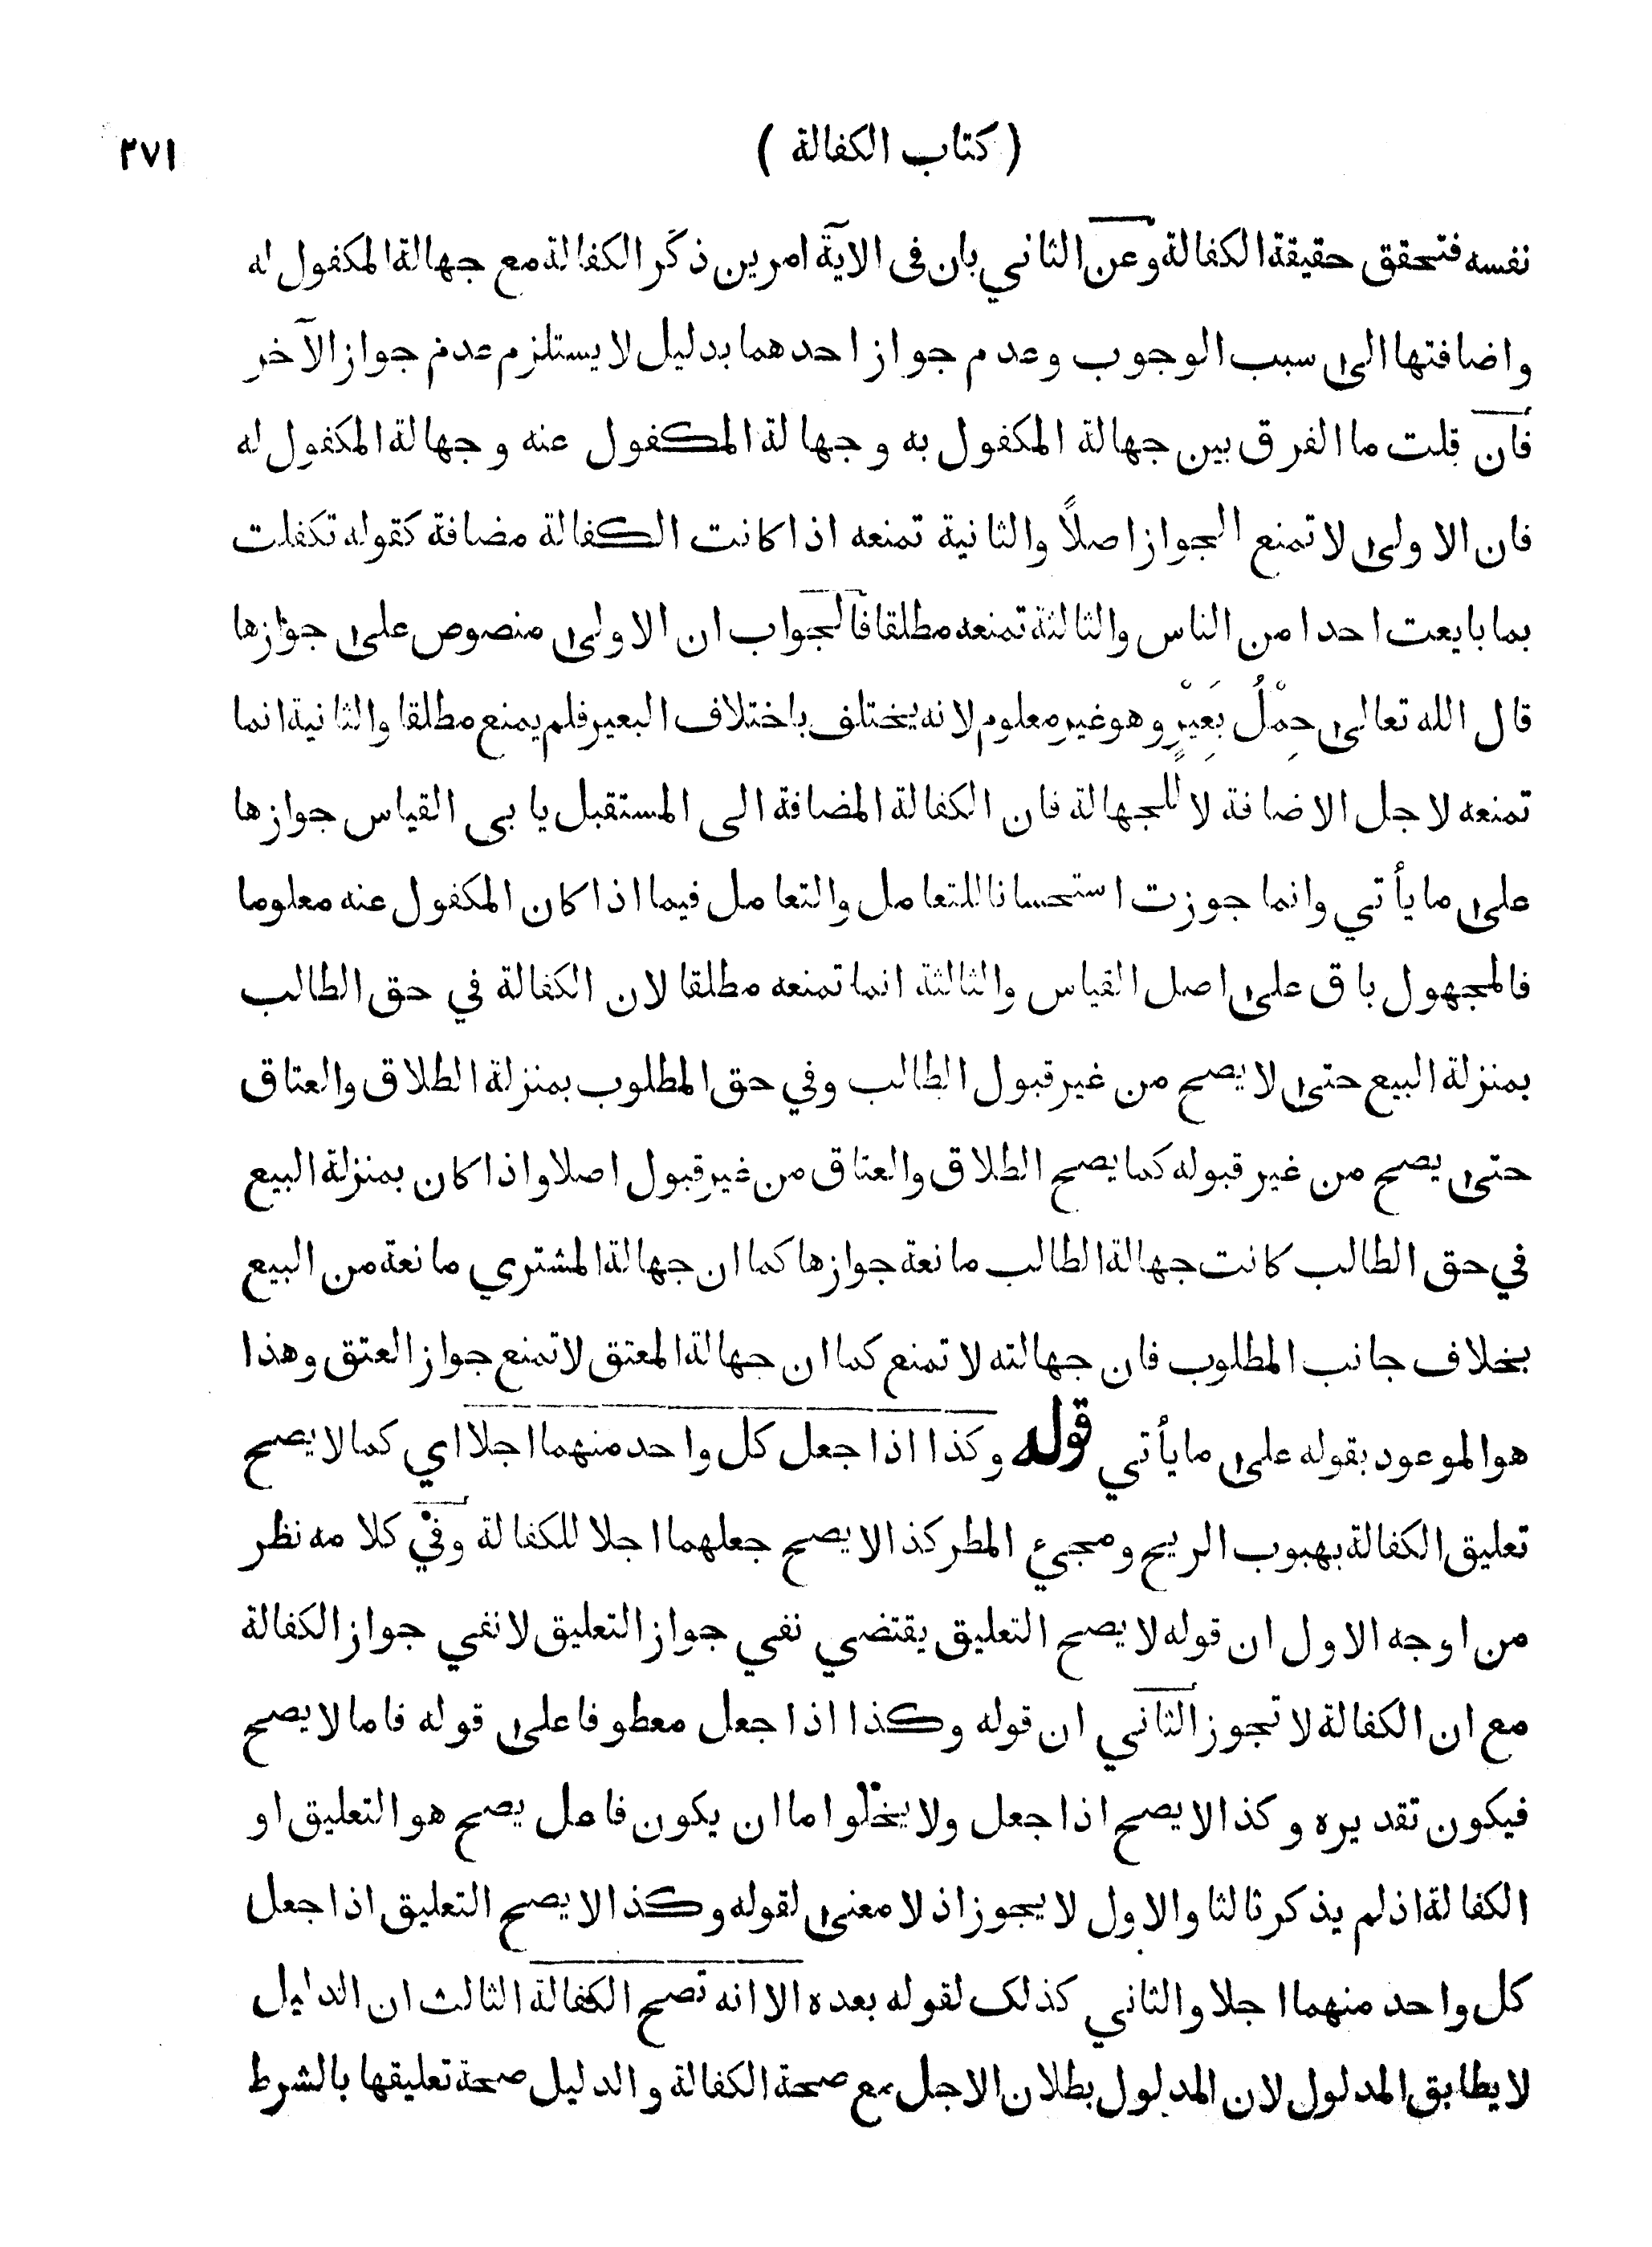 ( كتاب الكفالة ) ٢٧١
نفسه فتحقق حقيقة الكفالة وعن الثاني بان فى الآية امرين ذكر الكفالة مع جهالة المكفول له
واضافتها الى سبب الوجوب وعدم جواز احدهما بدليل لا يستلزم عدم جواز الآخر
فان قلت ما الفرق بين جهالة المكفول به وجهالة المكفول عنه وجهالة المكفول له
فان الاولى لا تمنع الجواز اصلاً والثانية تمنعه اذا كانت الكفالة مضافة كقوله تكفلت
بما بايعت احدا من الناس والثالثة تمنعه مطلقا فالجواب ان الاولى منصوص على جوازها
قال الله تعالى حِمْلُ بَعِيْرٍ وهو غير معلوم لانه يختلف باختلاف البعير فلم يمنع مطلقا والثانية انما
تمنعه لاجل الاضافة لا للجهالة فان الكفالة المضافة الى المستقبل يابى القياس جوازها
على ما يأتي وانما جوزت استحسانا للتعامل والتعامل فيما اذا كان المكفول عنه معلوما
فالمجهول باق على اصل القياس والثالثة انما تمنعه مطلقا لان الكفالة في حق الطالب
بمنزلة البيع حتى لا يصح من غير قبول الطالب وفي حق المطلوب بمنزلة الطلاق والعتاق
حتى يصح من غير قبوله كما يصح الطلاق والعتاق من غير قبول اصلا واذا كان بمنزلة البيع
في حق الطالب كانت جهالة الطالب مانعة جوازها كما ان جهالة المشتري مانعة من البيع
بخلاف جانب المطلوب فان جهالته لا تمنع كما ان جهالة المعتق لا تمنع جواز العتق وهذا
هو الموعود بقوله على ما يأتي قوله وكذا اذا جعل كل واحد منهما اجلا اي كما لا يصح
تعليق الكفالة بهبوب الريح ومجيء المطر كذا لا يصح جعلهما اجلا للكفالة وفي كلامه نظر
من اوجه الاول ان قوله لا يصح التعليق يقتضي نفي جواز التعليق لا نفي جواز الكفالة
مع ان الكفالة لا تجوز الثاني ان قوله وكذا اذا جعل معطوفا على قوله فاما لا يصح
فيكون تقديره وكذا لا يصح اذا جعل ولا يخلوا ما ان يكون فاعل يصح هو التعليق او
الكفالة اذ لم يذكر ثالثا والاول لا يجوز اذ لا معنى لقوله وكذا لا يصح التعليق اذا جعل
كل واحد منهما اجلا والثاني كذلك لقوله بعده الا انه تصح الكفالة الثالث ان الدليل
لا يطابق المدلول لان المدلول بطلان الاجل مع صحة الكفالة والدليل صحة تعليقها بالشرط